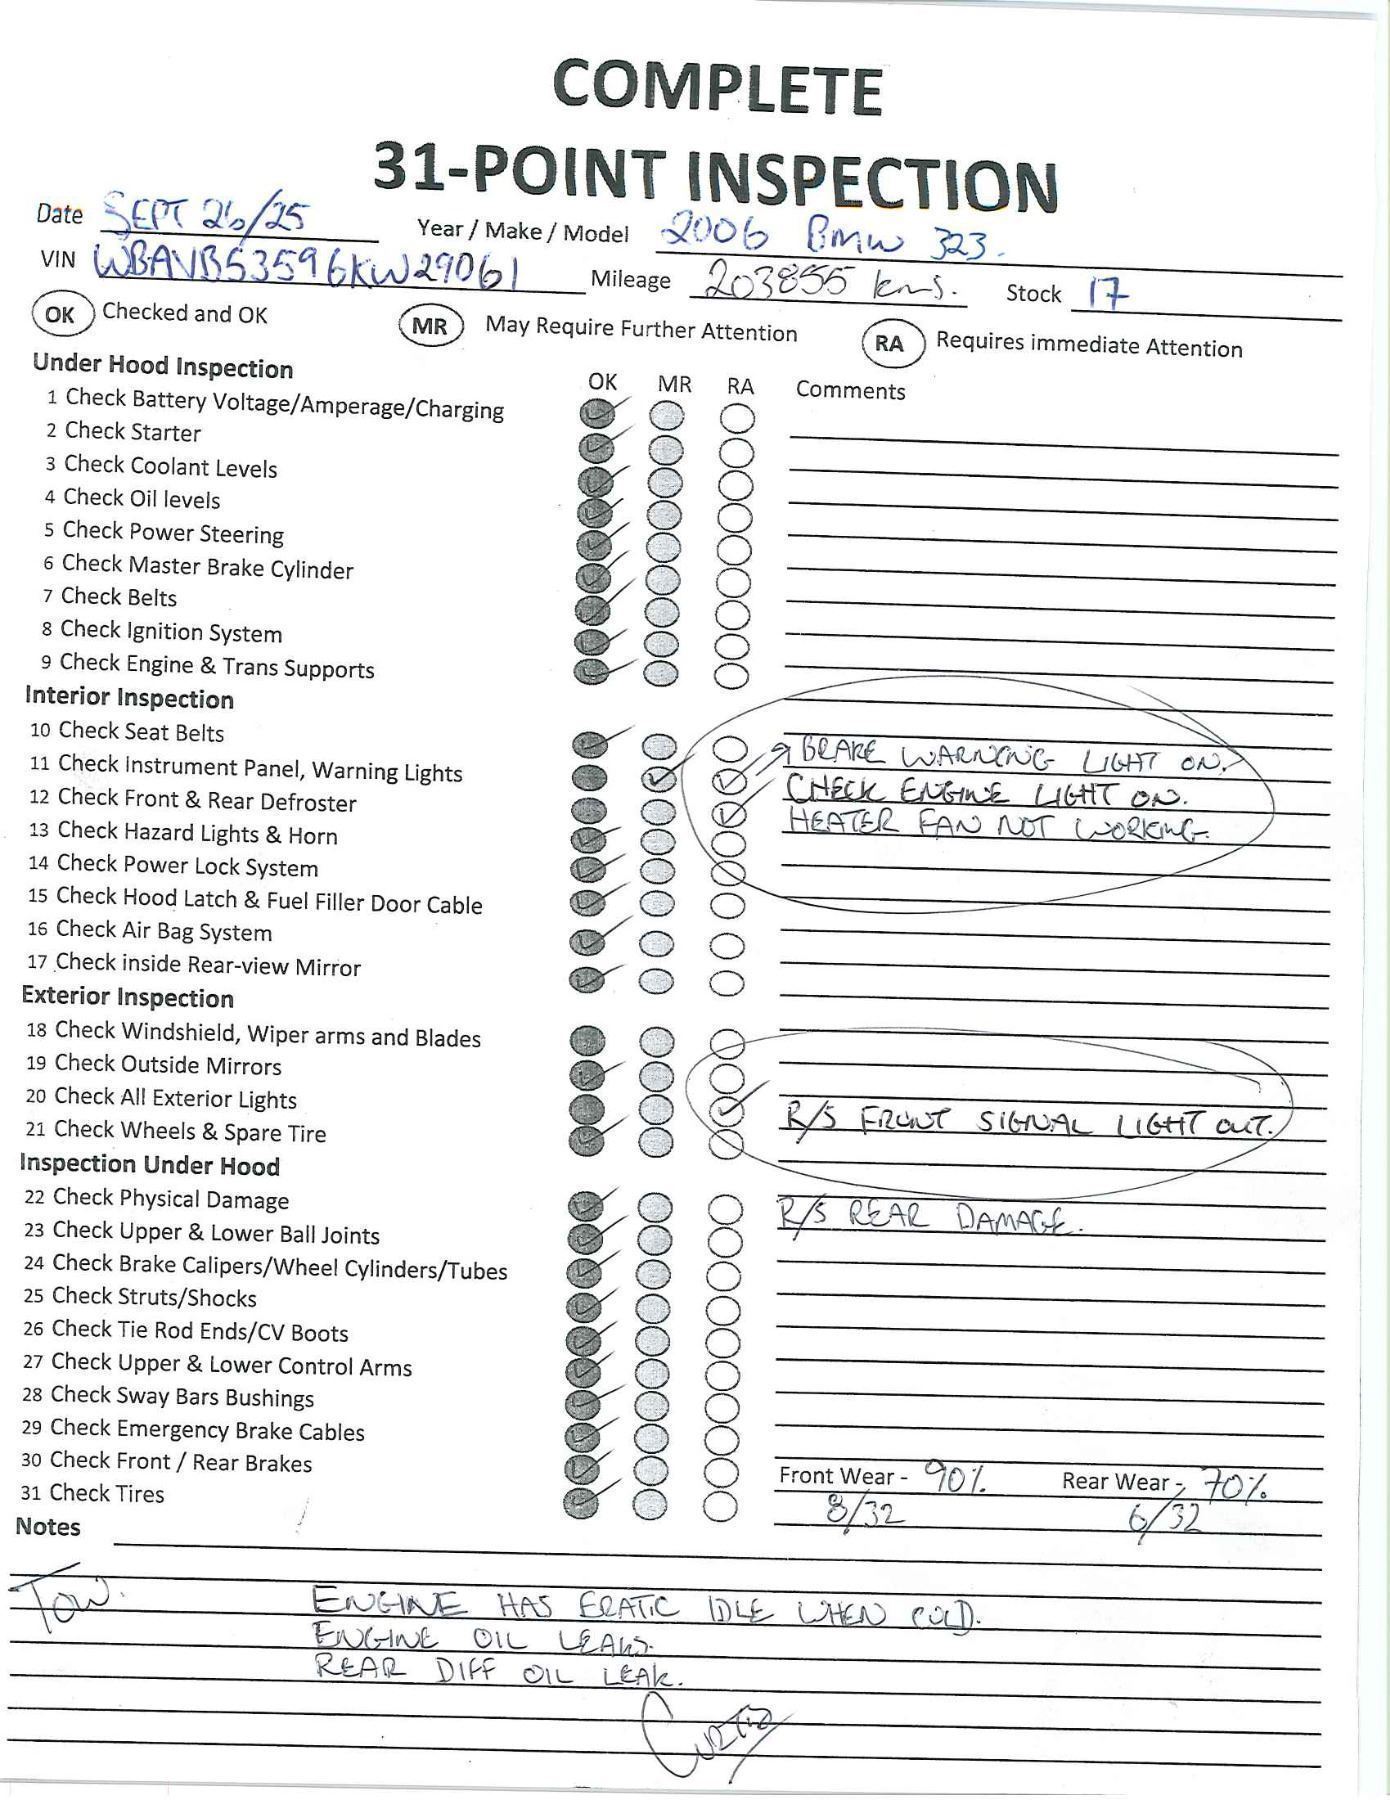 COMPLETE
31-POINT INSPECTION
Date SEPT 26/25 Year / Make / Model 2006 BMW 323.
VIN WBAVB53596KW29061 Mileage 203855 kms. Stock 17
OK Checked and OK MR May Require Further Attention RA Requires immediate Attention
Under Hood Inspection OK MR RA Comments
1 Check Battery Voltage/Amperage/Charging
2 Check Starter
3 Check Coolant Levels
4 Check Oil levels
5 Check Power Steering
6 Check Master Brake Cylinder
7 Check Belts
8 Check Ignition System
9 Check Engine & Trans Supports
Interior Inspection
10 Check Seat Belts
11 Check instrument Panel, Warning Lights BRAKE WARNING LIGHT ON.
12 Check Front & Rear Defroster CHECK ENGINE LIGHT ON.
13 Check Hazard Lights & Horn HEATER FAN NOT WORKING.
14 Check Power Lock System
15 Check Hood Latch & Fuel Filler Door Cable
16 Check Air Bag System
17 Check inside Rear-view Mirror
Exterior Inspection
18 Check Windshield, Wiper arms and Blades
19 Check Outside Mirrors
20 Check All Exterior Lights R/S FRONT SIGNAL LIGHT OUT.
21 Check Wheels & Spare Tire
Inspection Under Hood
22 Check Physical Damage R/S REAR DAMAGE.
23 Check Upper & Lower Ball Joints
24 Check Brake Calipers/Wheel Cylinders/Tubes
25 Check Struts/Shocks
26 Check Tie Rod Ends/CV Boots
27 Check Upper & Lower Control Arms
28 Check Sway Bars Bushings
29 Check Emergency Brake Cables
30 Check Front / Rear Brakes Front Wear - 90% Rear Wear - 70%
31 Check Tires 8/32 6/32
Notes
TOW. ENGINE HAS ERATIC IDLE WHEN COLD.
ENGINE OIL LEAKS.
REAR DIFF OIL LEAK.
CURTIS